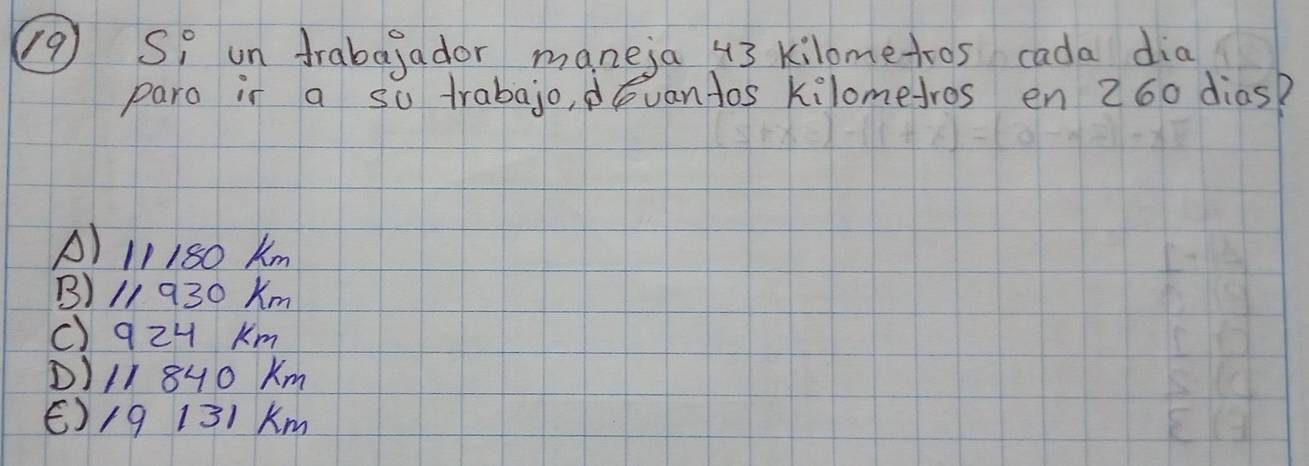 19) Si un trabajador maneja 43 Kilometros cada dia
para ir a su trabajo, ¿Cuantos Kilometros en 260 dias?
A) 11 180 Km
B) 11 930 Km
C) 924 Km
D) 11 840 Km
E) 19 131 Km